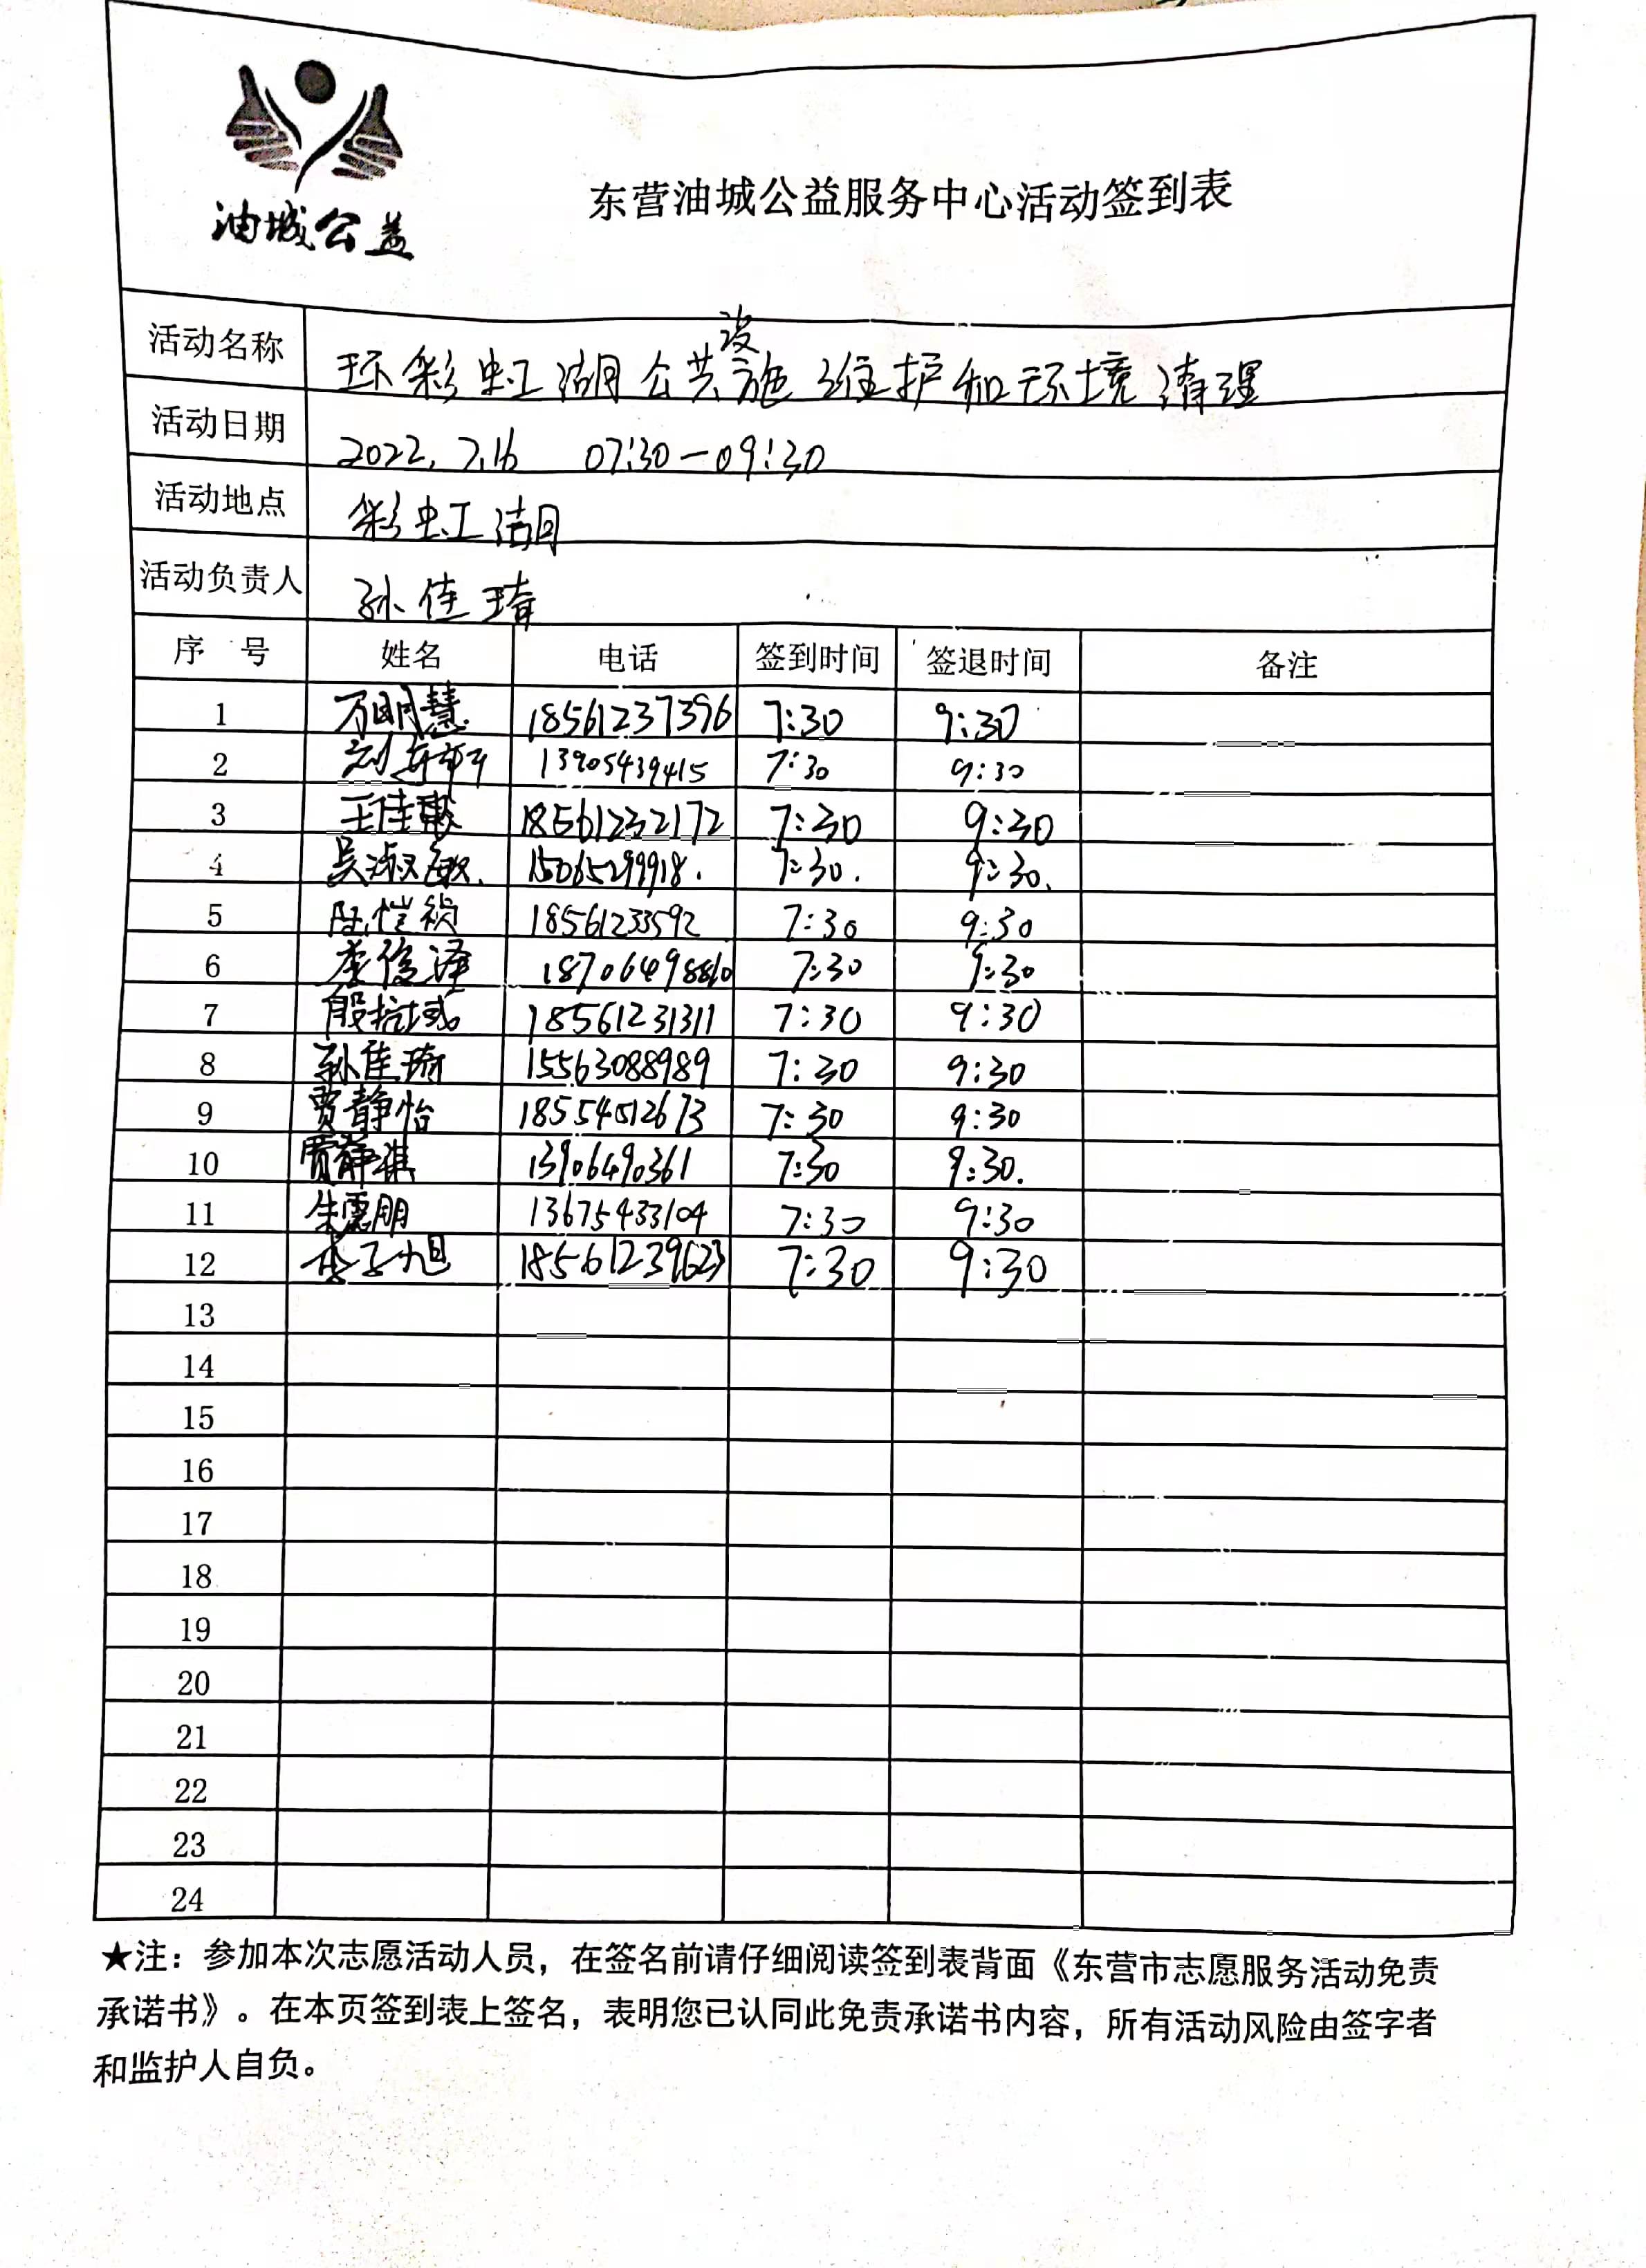 油城公益
东营油城公益服务中心活动签到表
活动名称 环彩虹湖公共设施维护和环境清理
活动日期 2022.7.16 07:30-09:30
活动地点 彩虹湖
活动负责人 孙佳琦
序号 姓名 电话 签到时间 签退时间 备注
1 万明慧 18561237396 7:30 9:30
2 13905439415 7:30 9:30
3 王佳惠 18561232172 7:30 9:30
4 吴淑敏 15065299918 7:30 9:30
5 陈恺祯 18561233592 7:30 9:30
6 李俊泽 7:30 9:30
7 殷 18561231311 7:30 9:30
8 孙佳琦 15563088989 7:30 9:30
9 贾静怡 18554512673 7:30 9:30
10 贾静淇 13906490361 7:30 9:30
11 朱 13675433104 7:30 9:30
12 李子旭 18561239623 7:30 9:30
13
14
15
16
17
18
19
20
21
22
23
24
★注：参加本次志愿活动人员，在签名前请仔细阅读签到表背面《东营市志愿服务活动免责
承诺书》。在本页签到表上签名，表明您已认同此免责承诺书内容，所有活动风险由签字者
和监护人自负。